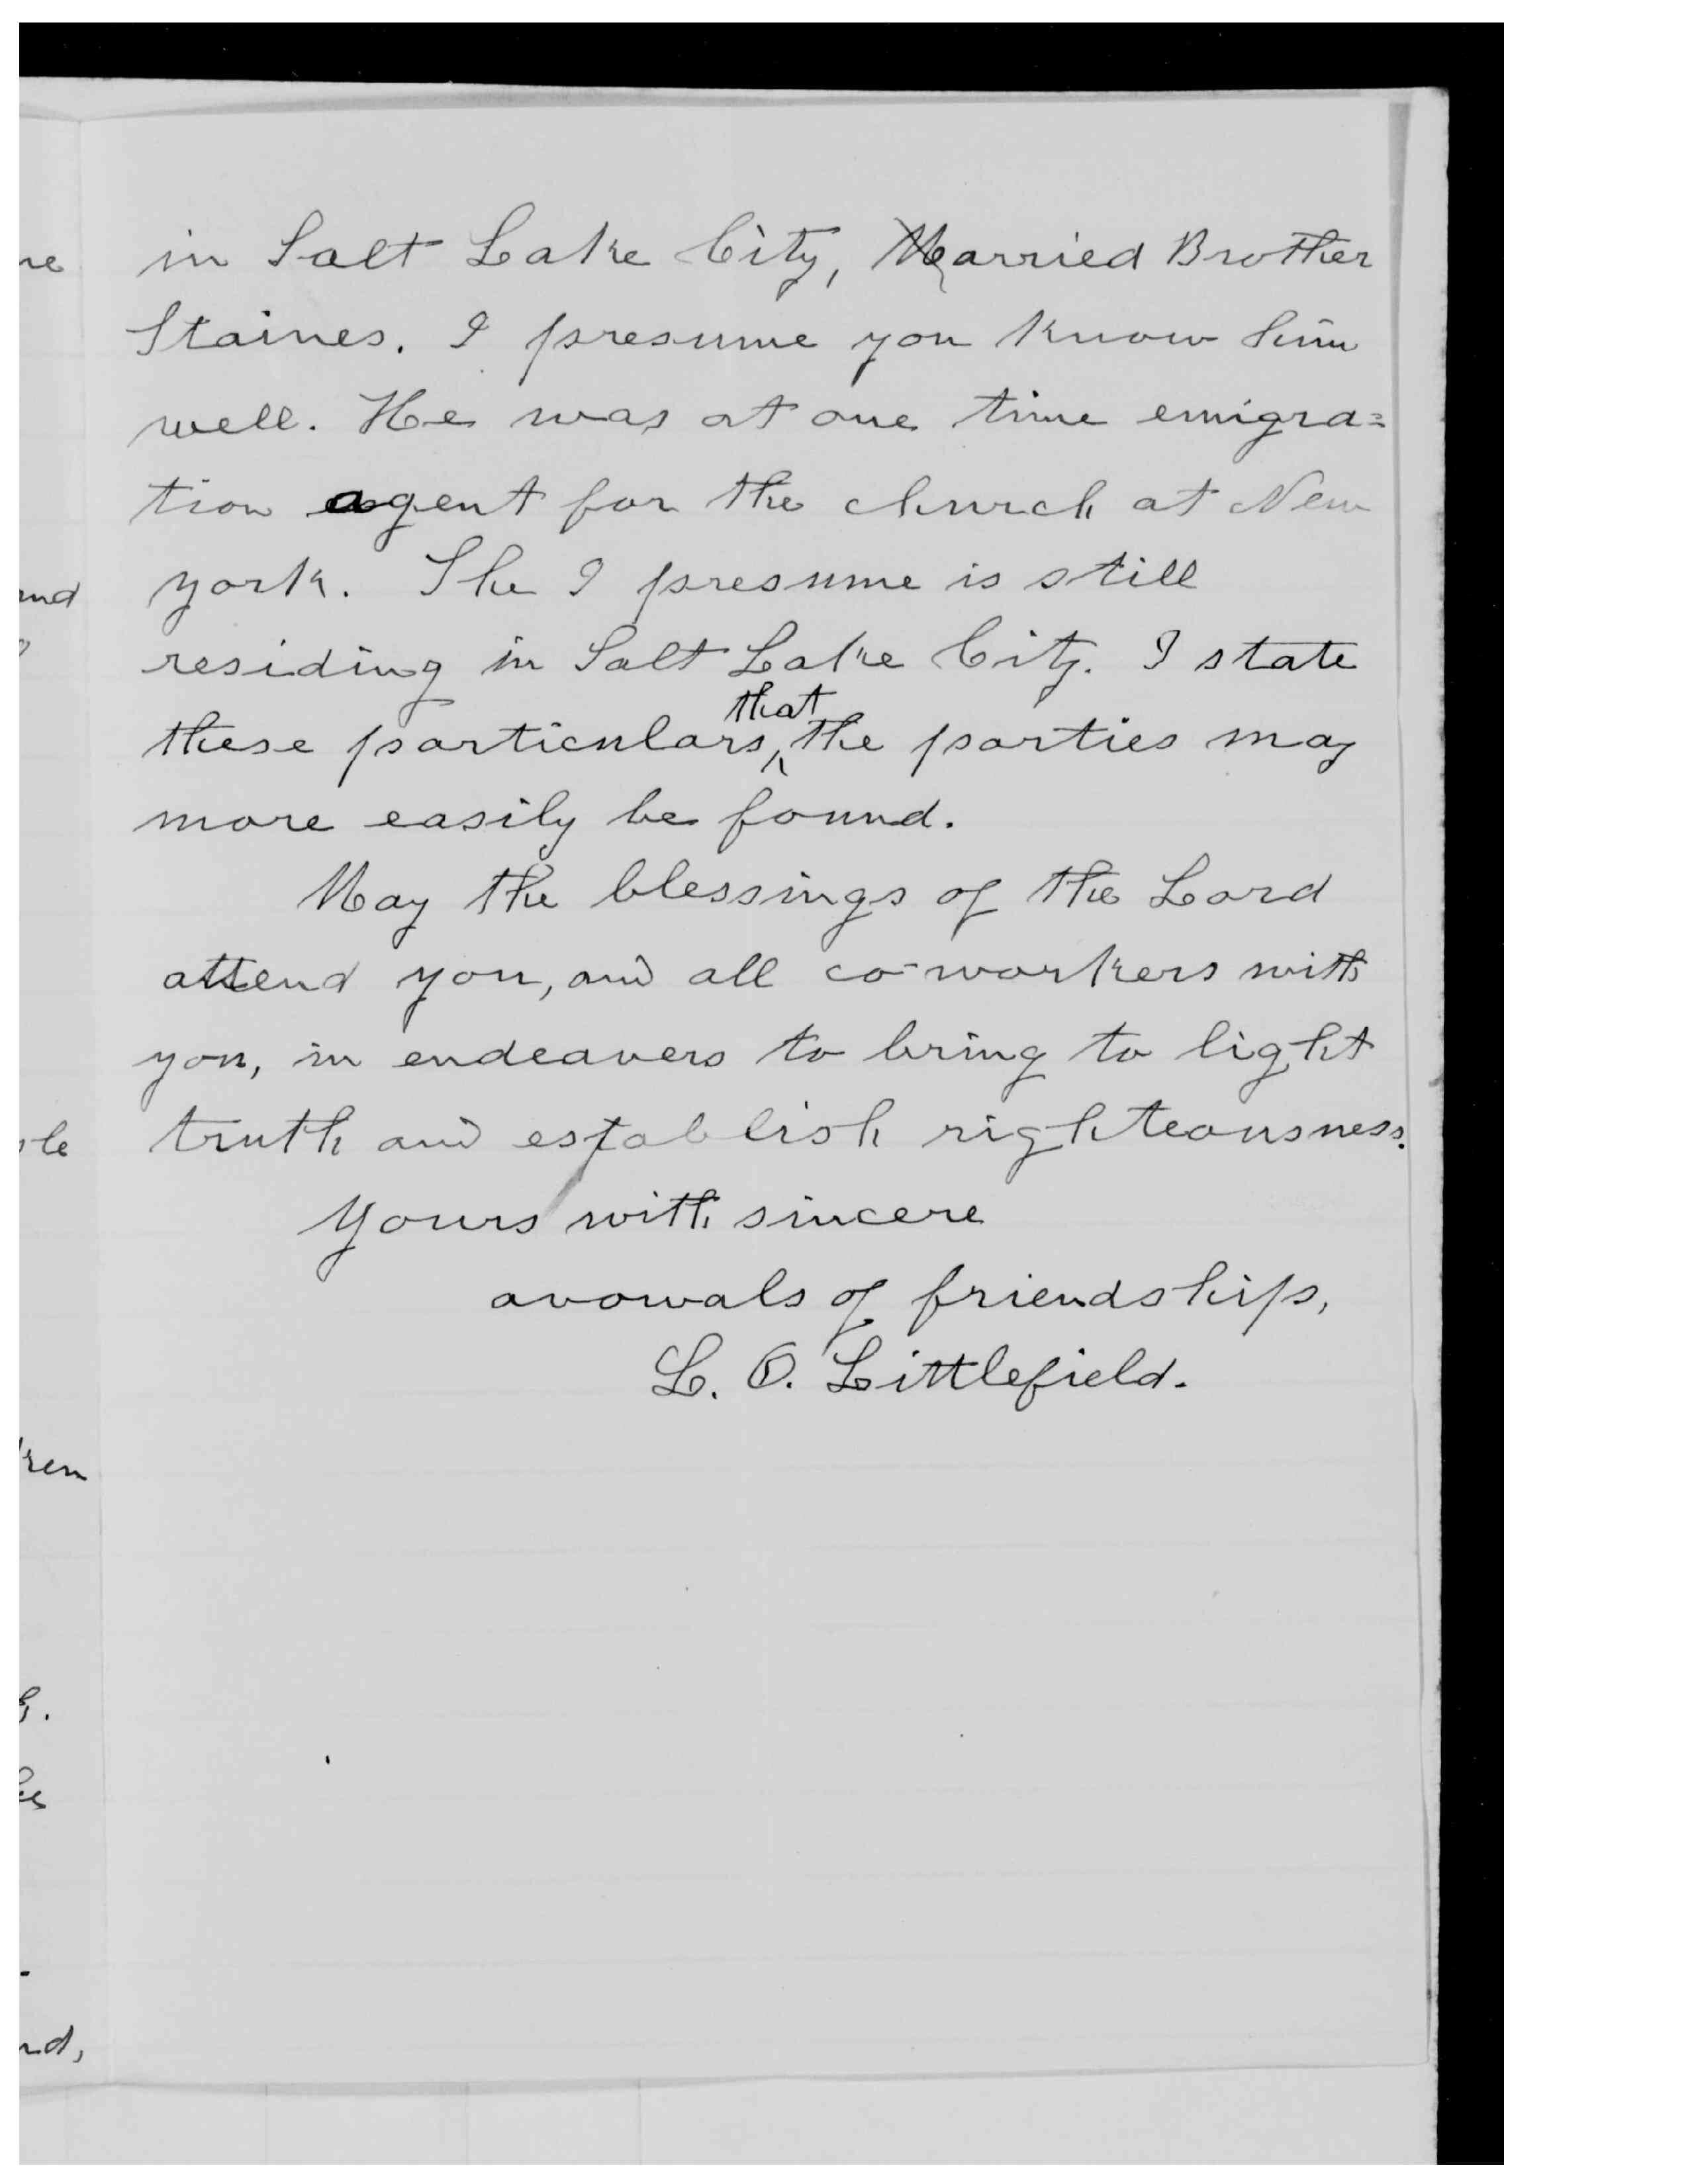 in Salt Lake City, Married Brother
Staines. I presume you know him
well. He was at one time emigra=
tion agent for the church at New
york. She I presume is still
residing in Salt Lake City. I state
that
these particulars, the parties may
more easily be found.
May the blessings of the Lord
attend you, and all co-workers with
you, in endeavers to bring to light
truth and establish righteousness.
Yours with sincere
avowals of friendship,
L. O. Littlefield.